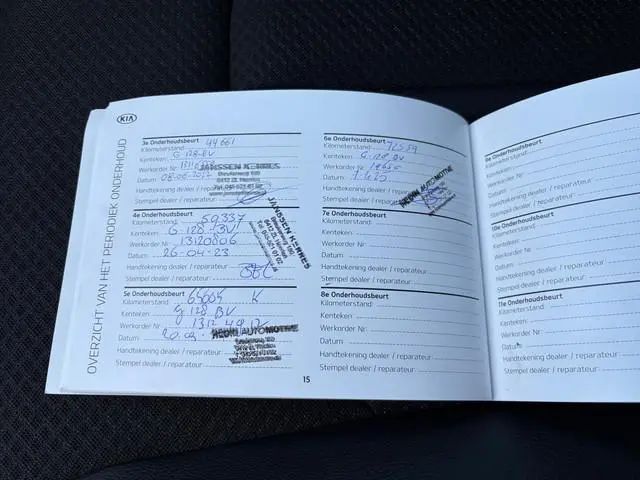 KIA
OVERZICHT VAN HET PERIODIEK ONDERHOUD
3e Onderhoudsbeurt
Kilometerstand: 44661
Kenteken: G-128-BV
Werkorder Nr:
Datum: 08-06-2022
Handtekening dealer / reparateur:
Stempel dealer / reparateur:
JANSSEN KERRES
4e Onderhoudsbeurt
Kilometerstand: 59337
Kenteken: G-128-BV
Werkorder Nr: 13120806
Datum: 26-04-23
Handtekening dealer / reparateur:
Stempel dealer / reparateur:
JANSSEN KERRES
5e Onderhoudsbeurt
Kilometerstand: K
Kenteken: G 128 BV
Werkorder Nr:
Datum:
Handtekening dealer / reparateur:
Stempel dealer / reparateur:
HEDIN AUTOMOTIVE
15
6e Onderhoudsbeurt
Kilometerstand:
Kenteken: G-128-BV
Werkorder Nr:
Datum:
Handtekening dealer / reparateur:
Stempel dealer / reparateur:
HEDIN AUTOMOTIVE
7e Onderhoudsbeurt
Kilometerstand:
Kenteken:
Werkorder Nr:
Datum:
Handtekening dealer / reparateur:
Stempel dealer / reparateur:
8e Onderhoudsbeurt
Kilometerstand:
Kenteken:
Werkorder Nr:
Datum:
Handtekening dealer / reparateur:
Stempel dealer / reparateur:
Onderhoudsbeurt
Kilometerstand:
Kenteken:
Werkorder Nr:
Datum:
Handtekening dealer / reparateur:
Stempel dealer / reparateur:
10e Onderhoudsbeurt
Kilometerstand:
Kenteken:
Werkorder Nr:
Datum:
Handtekening dealer / reparateur:
Stempel dealer / reparateur:
11e Onderhoudsbeurt
Kilometerstand:
Kenteken:
Werkorder Nr:
Datum:
Handtekening dealer / reparateur:
Stempel dealer / reparateur: